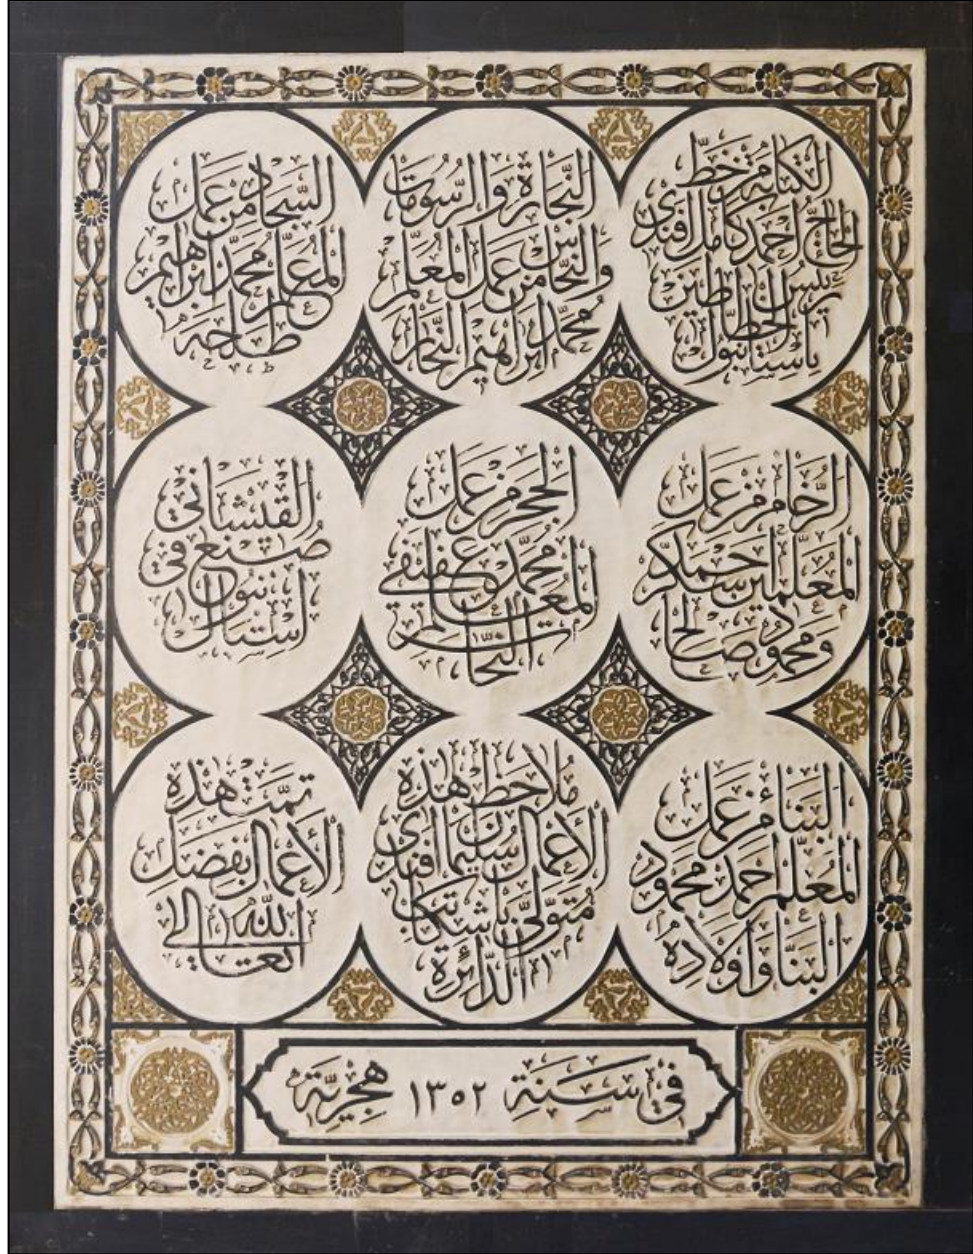 الكتابة من خط
الحاج احمد كامل افندي
رئيس الخطاطين
باستانبول
النجارة والرسومات
والنحاس من عمل المعلم
محمد ابراهيم النجار
السجاد من عمل
المعلم محمد ابراهيم
طلحه
الرخام من عمل
المعلمين احمد سكر
ومحمود صالح
الحجر من عمل
المعلم محمد عفيفي
النحات
القيشاني
صنع في
استانبول
البناء من عمل
المعلم احمد محمود
البنا واولاده
ملاحظ هذه
الأعمال سليمان افندي
متولي باشكاتب
الدائرة
تمت هذه
الأعمال بفضل
الله تعالى
في سنة ١٣٥٢ هجرية